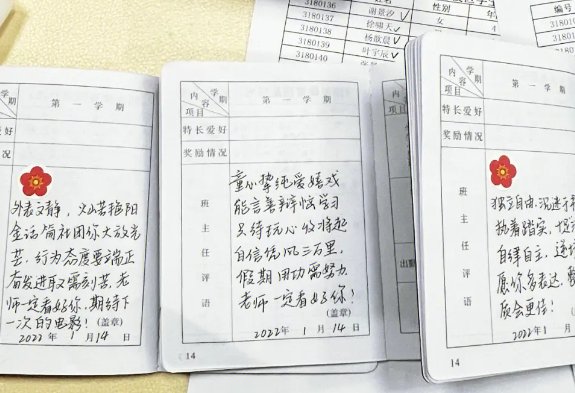 3180136 谢景汐 ✓
性别
年
编号
3180137 徐啸天 ✓
女
3180138 杨歆晨 ✓
3180139 叶宇辰 ✓
3180140
学期
第一学期
爱好
情况
外表文静，火山芸艳阳
金话筒社团你大放光
芒，行为态度要端正
奋发进取又需刻苦，老
师一定看好你，期待下
一次的电影！（盖章）
2022年 1月14日
学期
内容
项目
第一学期
特长爱好
奖励情况
班主任评语
童心挚纯爱嬉戏
能言善辩悟学习
只待玩心收将起
自信徐风三万里，
假期用功需努力
老师一定看好你！
（盖章）
2022年 1月14日
14
出勤
学期
内容
项目
第一
特长爱好
奖励情况
班主任评语
独立自由
执着踏实
自律自主
愿你多表达
质会更佳！
2022年
14